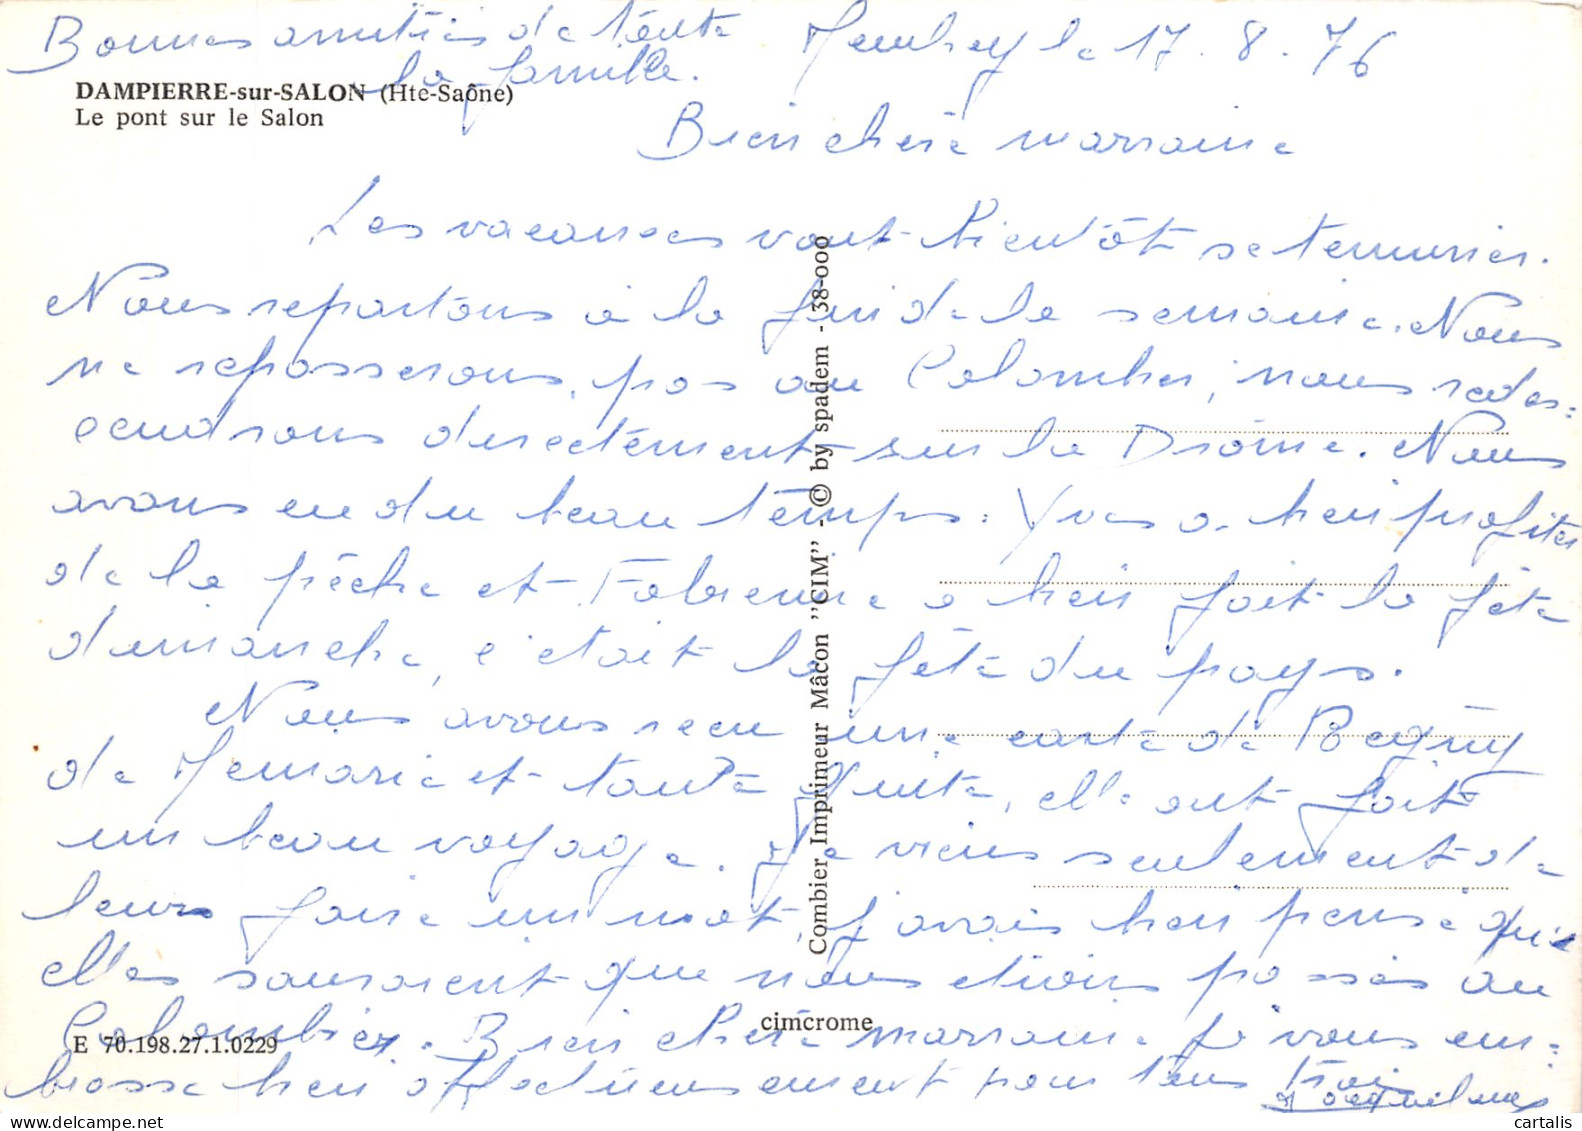 Bonnes amitiés de toute
la famille.
Membrey le 17.8.76
DAMPIERRE-sur-SALON (Hte-Saône)
Le pont sur le Salon
Bien chère marraine
Les vacances vont bientôt se terminer.
Nous repartons à la fin de la semaine. Nous
ne repasserons pas au Colombier, nous redes=
cendrons directement sur la Drôme. Nous
avons eu du beau temps : Yves a bien profiter
de la pêche et Fabienne a bien fait la fête
dimanche, c'était la fête du pays.
Nous avons reçu une carte de
de et tante, elle ont fait
un beau voyage. Je viens seulement de
leurs faire un mot, j'avais bien pensé que
elles sauraient que nous étions passés au
Colombier. Bien chère marraine je vous em=
brasse bien affectueusement pour tous trois
Jacqueline
Combier Imprimeur Mâcon "CIM" - © by spadem - 38-000
cimcrome
E 70.198.27.1.0229
cartalis